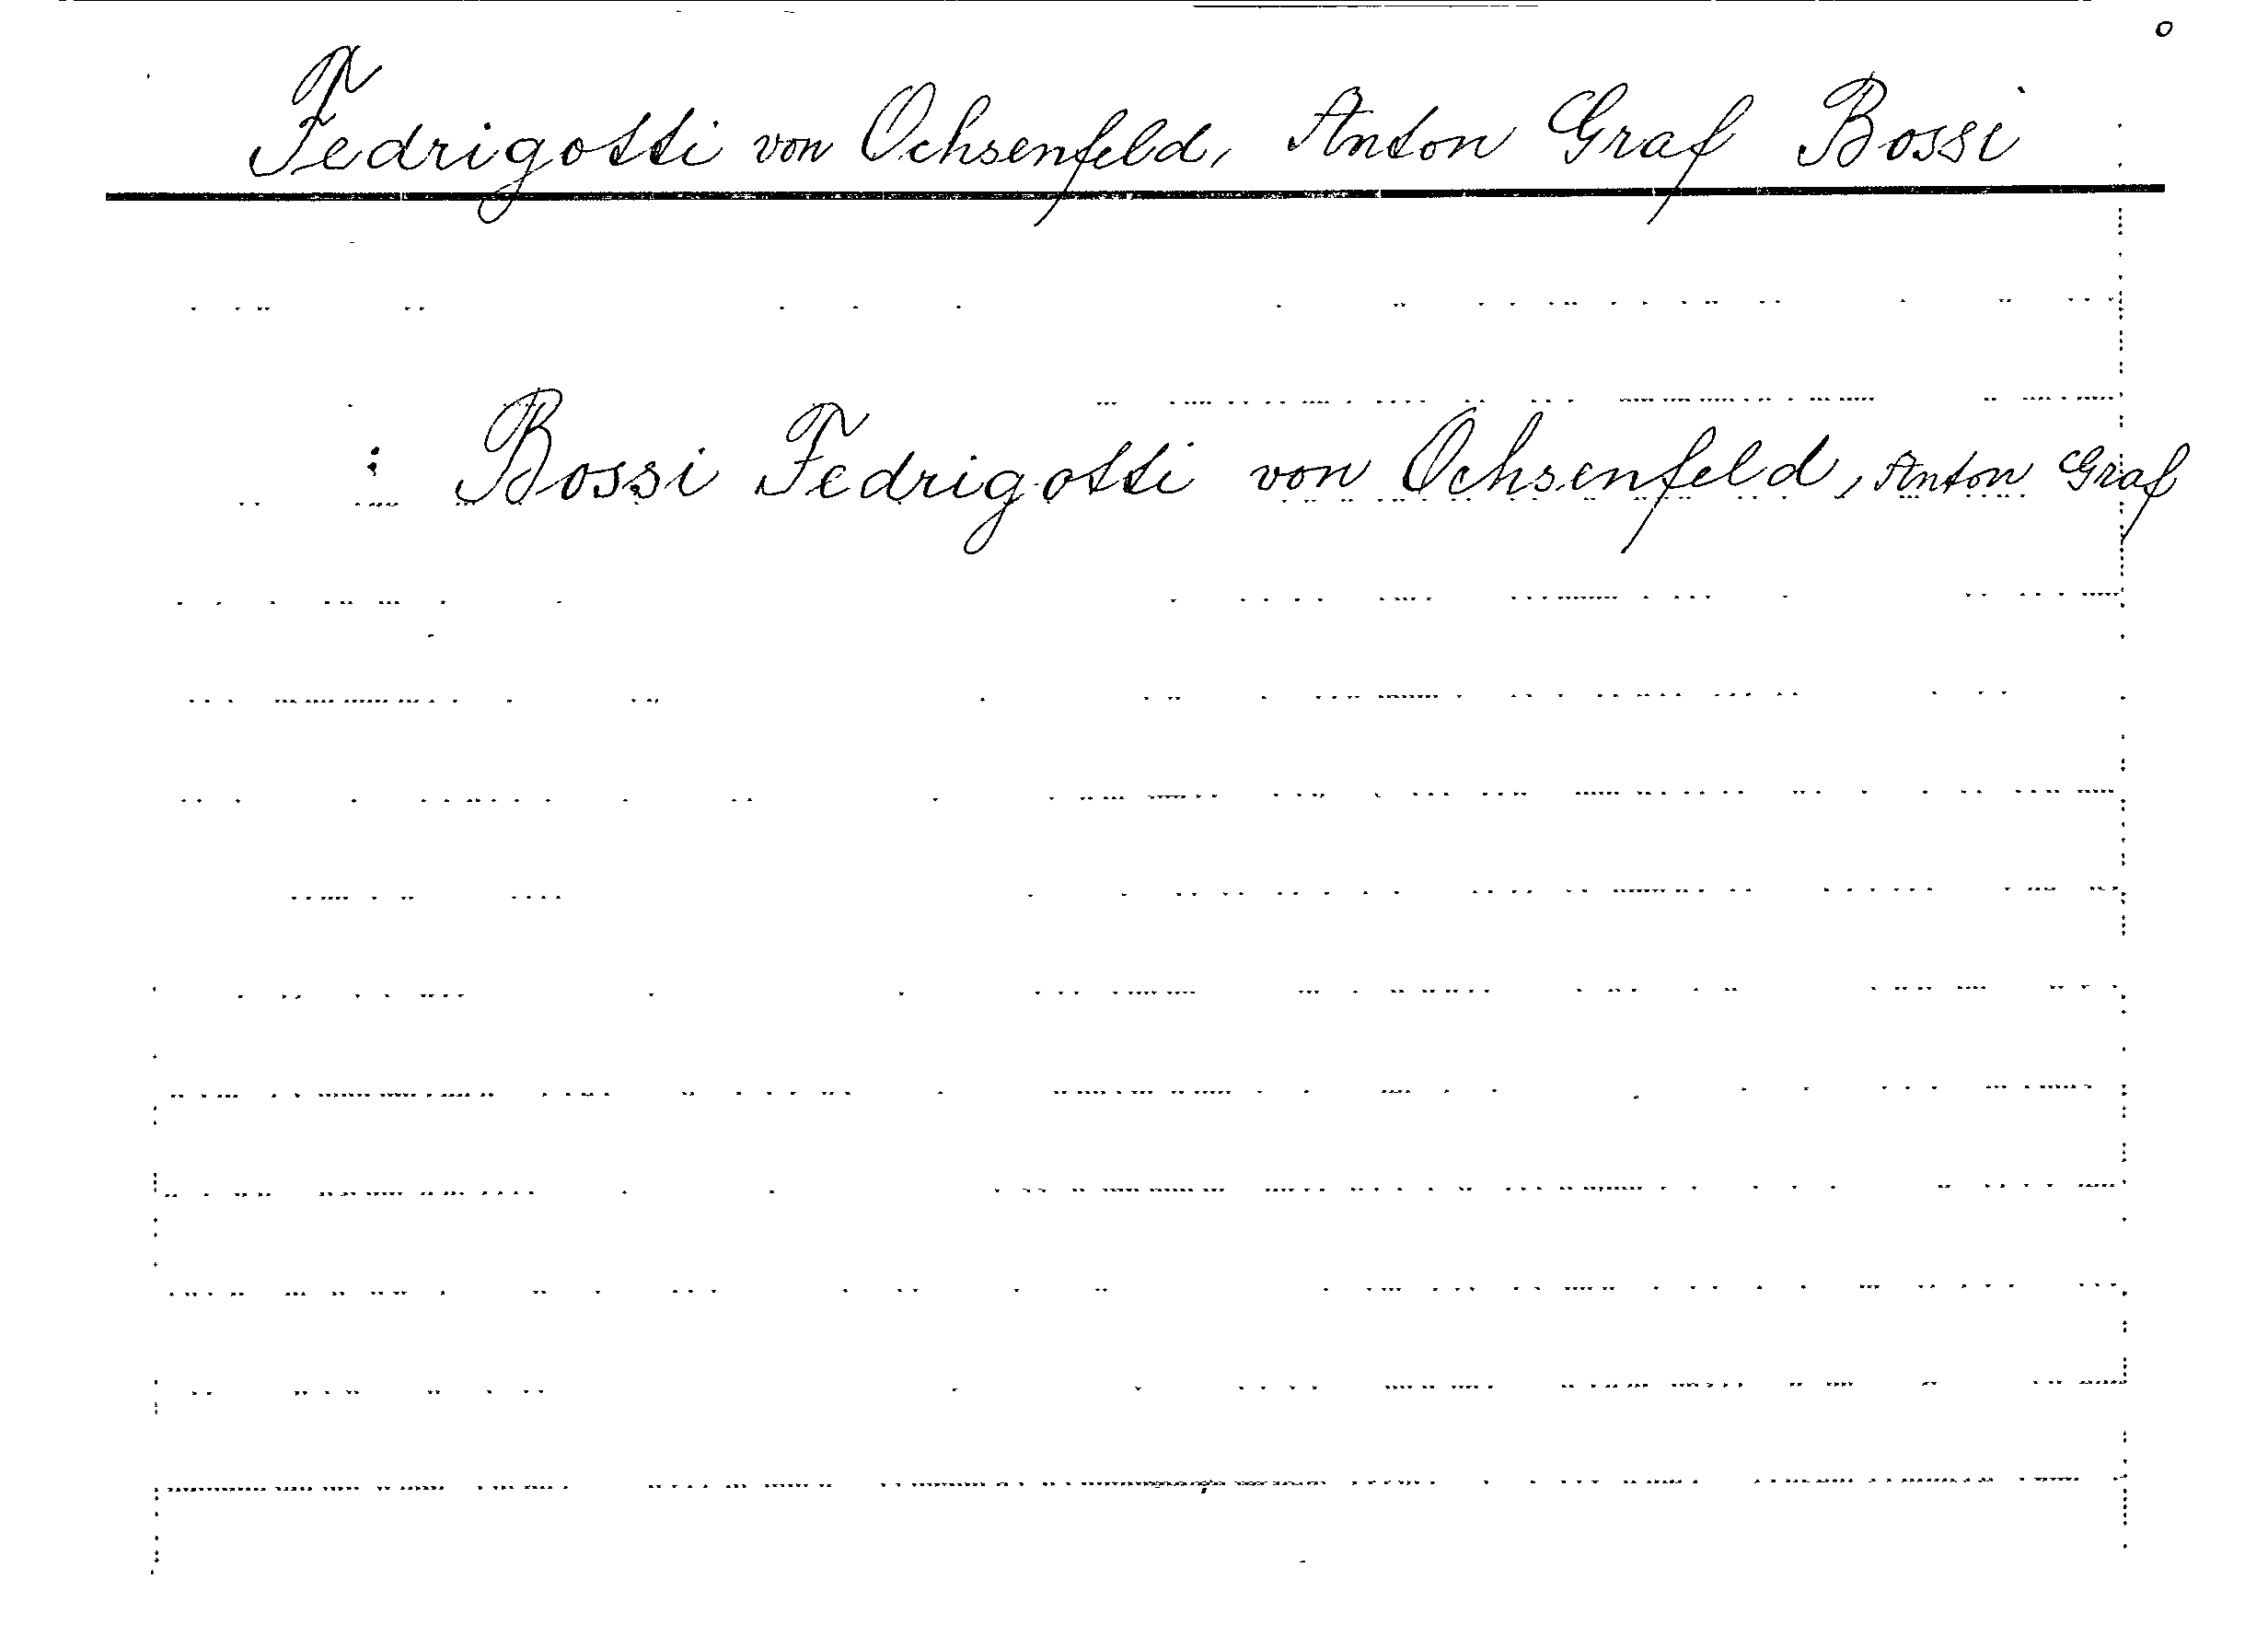 Fedrigotti von Ochsenfeld, Anton Graf Bossi
: Bossi Fedrigotti von Ochsenfeld, Anton Graf